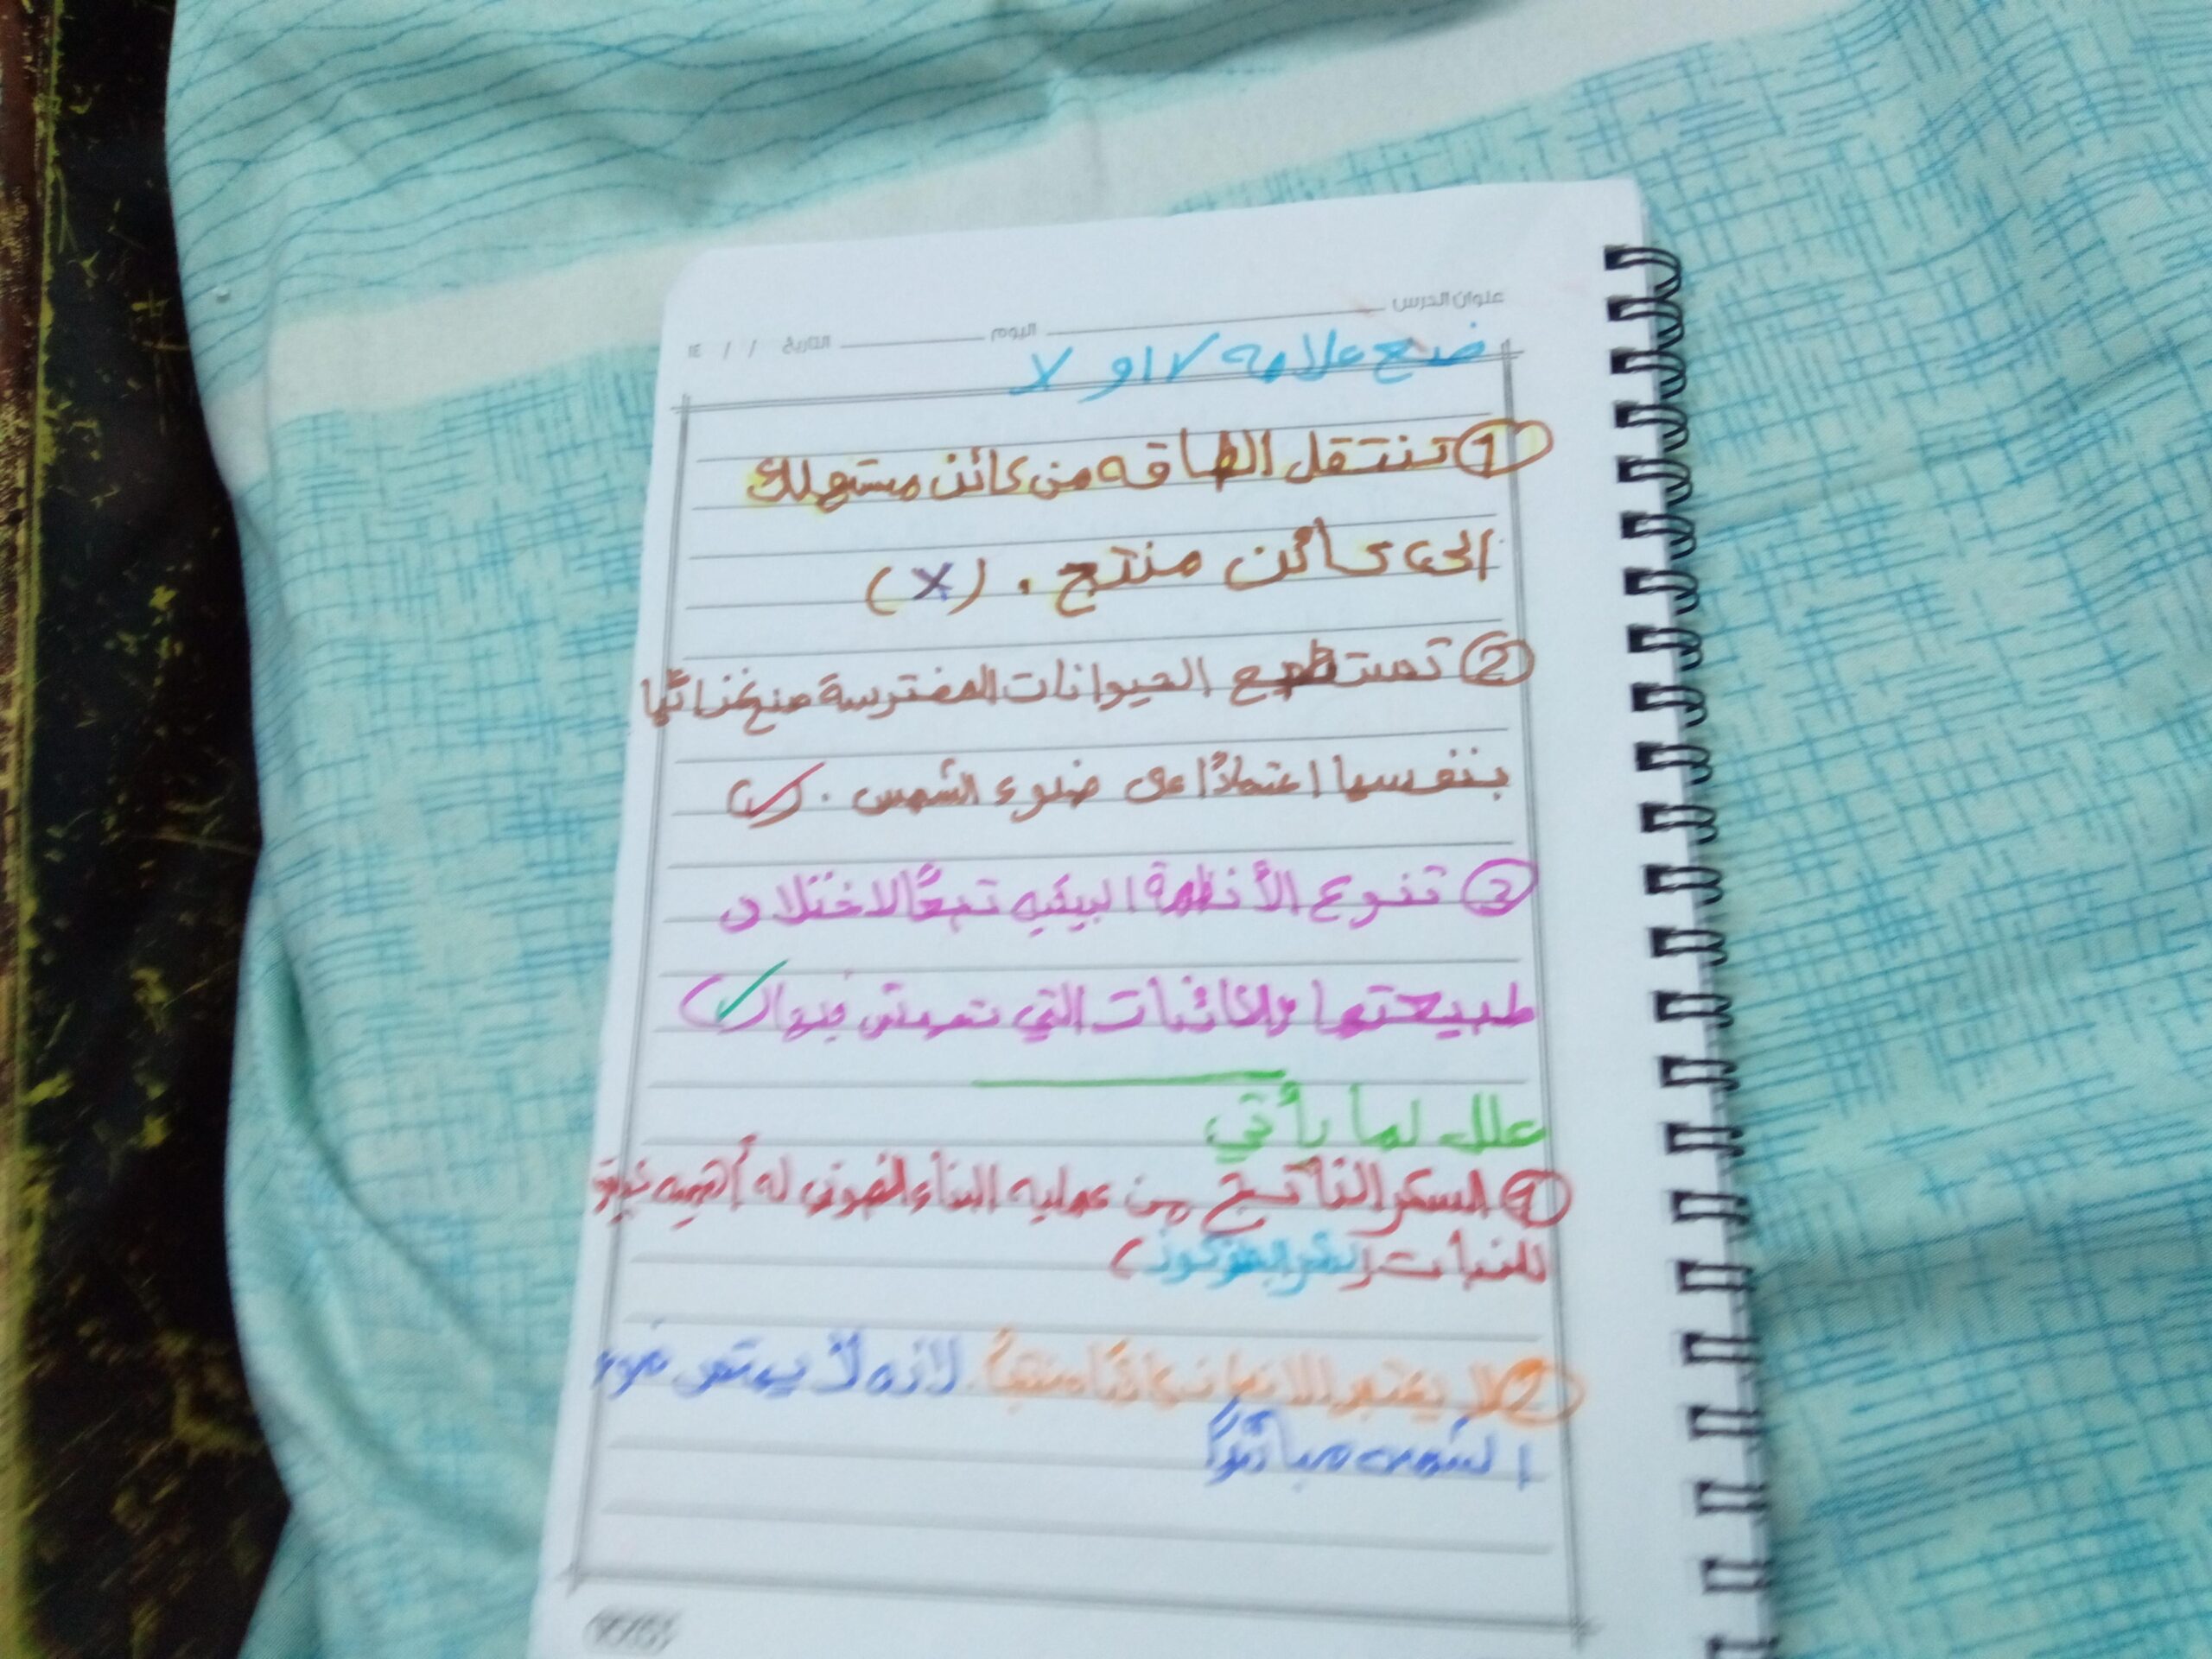 عنوان الدرس
اليوم التاريخ / / ١٤
ضع علامه ✓ او ✗
① تنتقل الطاقه من كائن مستهلك
الى كائن منتج . (✗)
② تستطيع الحيوانات المفترسة صنع غذائها
بنفسها اعتمادًا على ضوء الشمس . (✓)
③ تنوع الأنظمة البيئيه تبعًا لاختلاف
طبيعتها والكائنات التي تعيش فيها (✓)
علل لما يأتي
① السكر الناتج من عمليه البناء الضوئى له أهميه
للنبات
② لا يعتبر الانسان كائنًا منتجاً . لانه لا يمتص ضوء
الشمس مباشرة